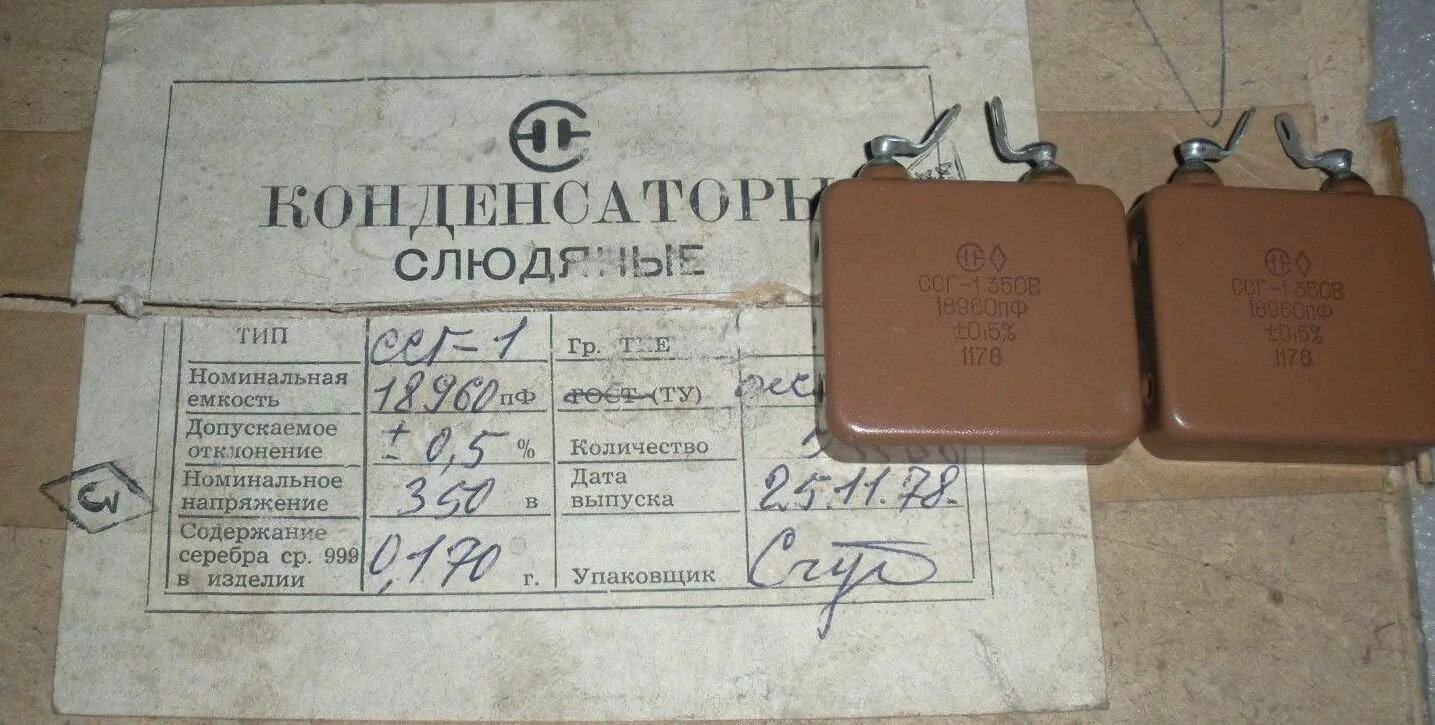 КОНДЕНСАТОРЫ
СЛЮДЯНЫЕ
ТИП ССГ-1 Гр. ТКЕ
Номинальная емкость 18960 пФ ГОСТ (ТУ)
Допускаемое отклонение ± 0,5 % Количество
Номинальное напряжение 350 в Дата выпуска 25.11.78.
Содержание серебра ср. 999 в изделии 0,170 г. Упаковщик
З
ССГ-1 350В
18960пФ
±0,5%
1178
ССГ-1 350В
18960пФ
±0,5%
1178